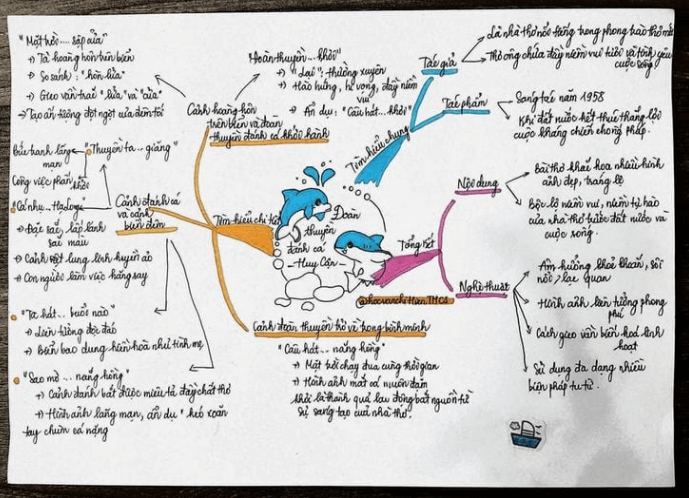 "Mặt trời.... sập cửa"
→ Tả hoàng hôn trên biển
→ So sánh: "hòn lửa"
→ Gieo vần trắc "lửa" và "cửa"
→ Tạo ấn tượng đột ngột của đêm tối
"Đoàn thuyền... khơi"
→ "Lại": thường xuyên
→ Hào hứng, hi vọng, đầy niềm vui
→ Ẩn dụ: "Câu hát... khơi"
Cảnh hoàng hôn
trên biển và đoàn
thuyền đánh cá khởi hành
Tác giả
Là nhà thơ nổi tiếng trong phong trào thơ mới
Thơ ông chứa đầy niềm vui tươi và tình yêu
cuộc sống
Tác phẩm
Sáng tác năm 1958
Khi đất nước kết thúc thắng lợi
cuộc kháng chiến chống Pháp.
Tìm hiểu chung
Bức tranh lãng
mạn
Công việc phấn khởi
"Thuyền ta - giăng"
"Cá nhụ... Hạ Long"
→ Đặc sắc, lấp lánh
sắc màu
→ Cảnh vật lung linh huyền ảo
→ Con người làm việc hăng say
Cảnh đánh cá
và cảnh
biển đêm
Tìm hiểu chi tiết
Đoàn
thuyền
đánh cá
- Huy Cận -
@hocvanchiHienTMCS
Tổng kết
Nội dung
Bài thơ khắc họa nhiều hình
ảnh đẹp, tráng lệ
Bộc lộ niềm vui, niềm tự hào
của nhà thơ trước đất nước và
cuộc sống.
Nghệ thuật
Âm hưởng khoẻ khoắn, sôi
nổi, lạc quan
Hình ảnh liên tưởng phong
phú
Cách gieo vần biến hoá linh
hoạt
Sử dụng đa dạng nhiều
biện pháp tu từ.
"Ta hát... buổi nào"
→ Liên tưởng độc đáo
→ Biển bao dung hiền hoà như tình mẹ
"Sao mờ... nắng hồng"
→ Cảnh đánh bắt được miêu tả đầy chất thơ
→ Hình ảnh lãng mạn, ẩn dụ "kéo xoăn
tay chùm cá nặng
Cảnh đoàn thuyền trở về trong bình minh
"Câu hát... nắng hồng"
→ Mặt trời chạy đua cùng thời gian
→ Hình ảnh mắt cá muôn dặm
khơi là thành quả lao động bắt nguồn từ
sự sáng tạo của nhà thơ.